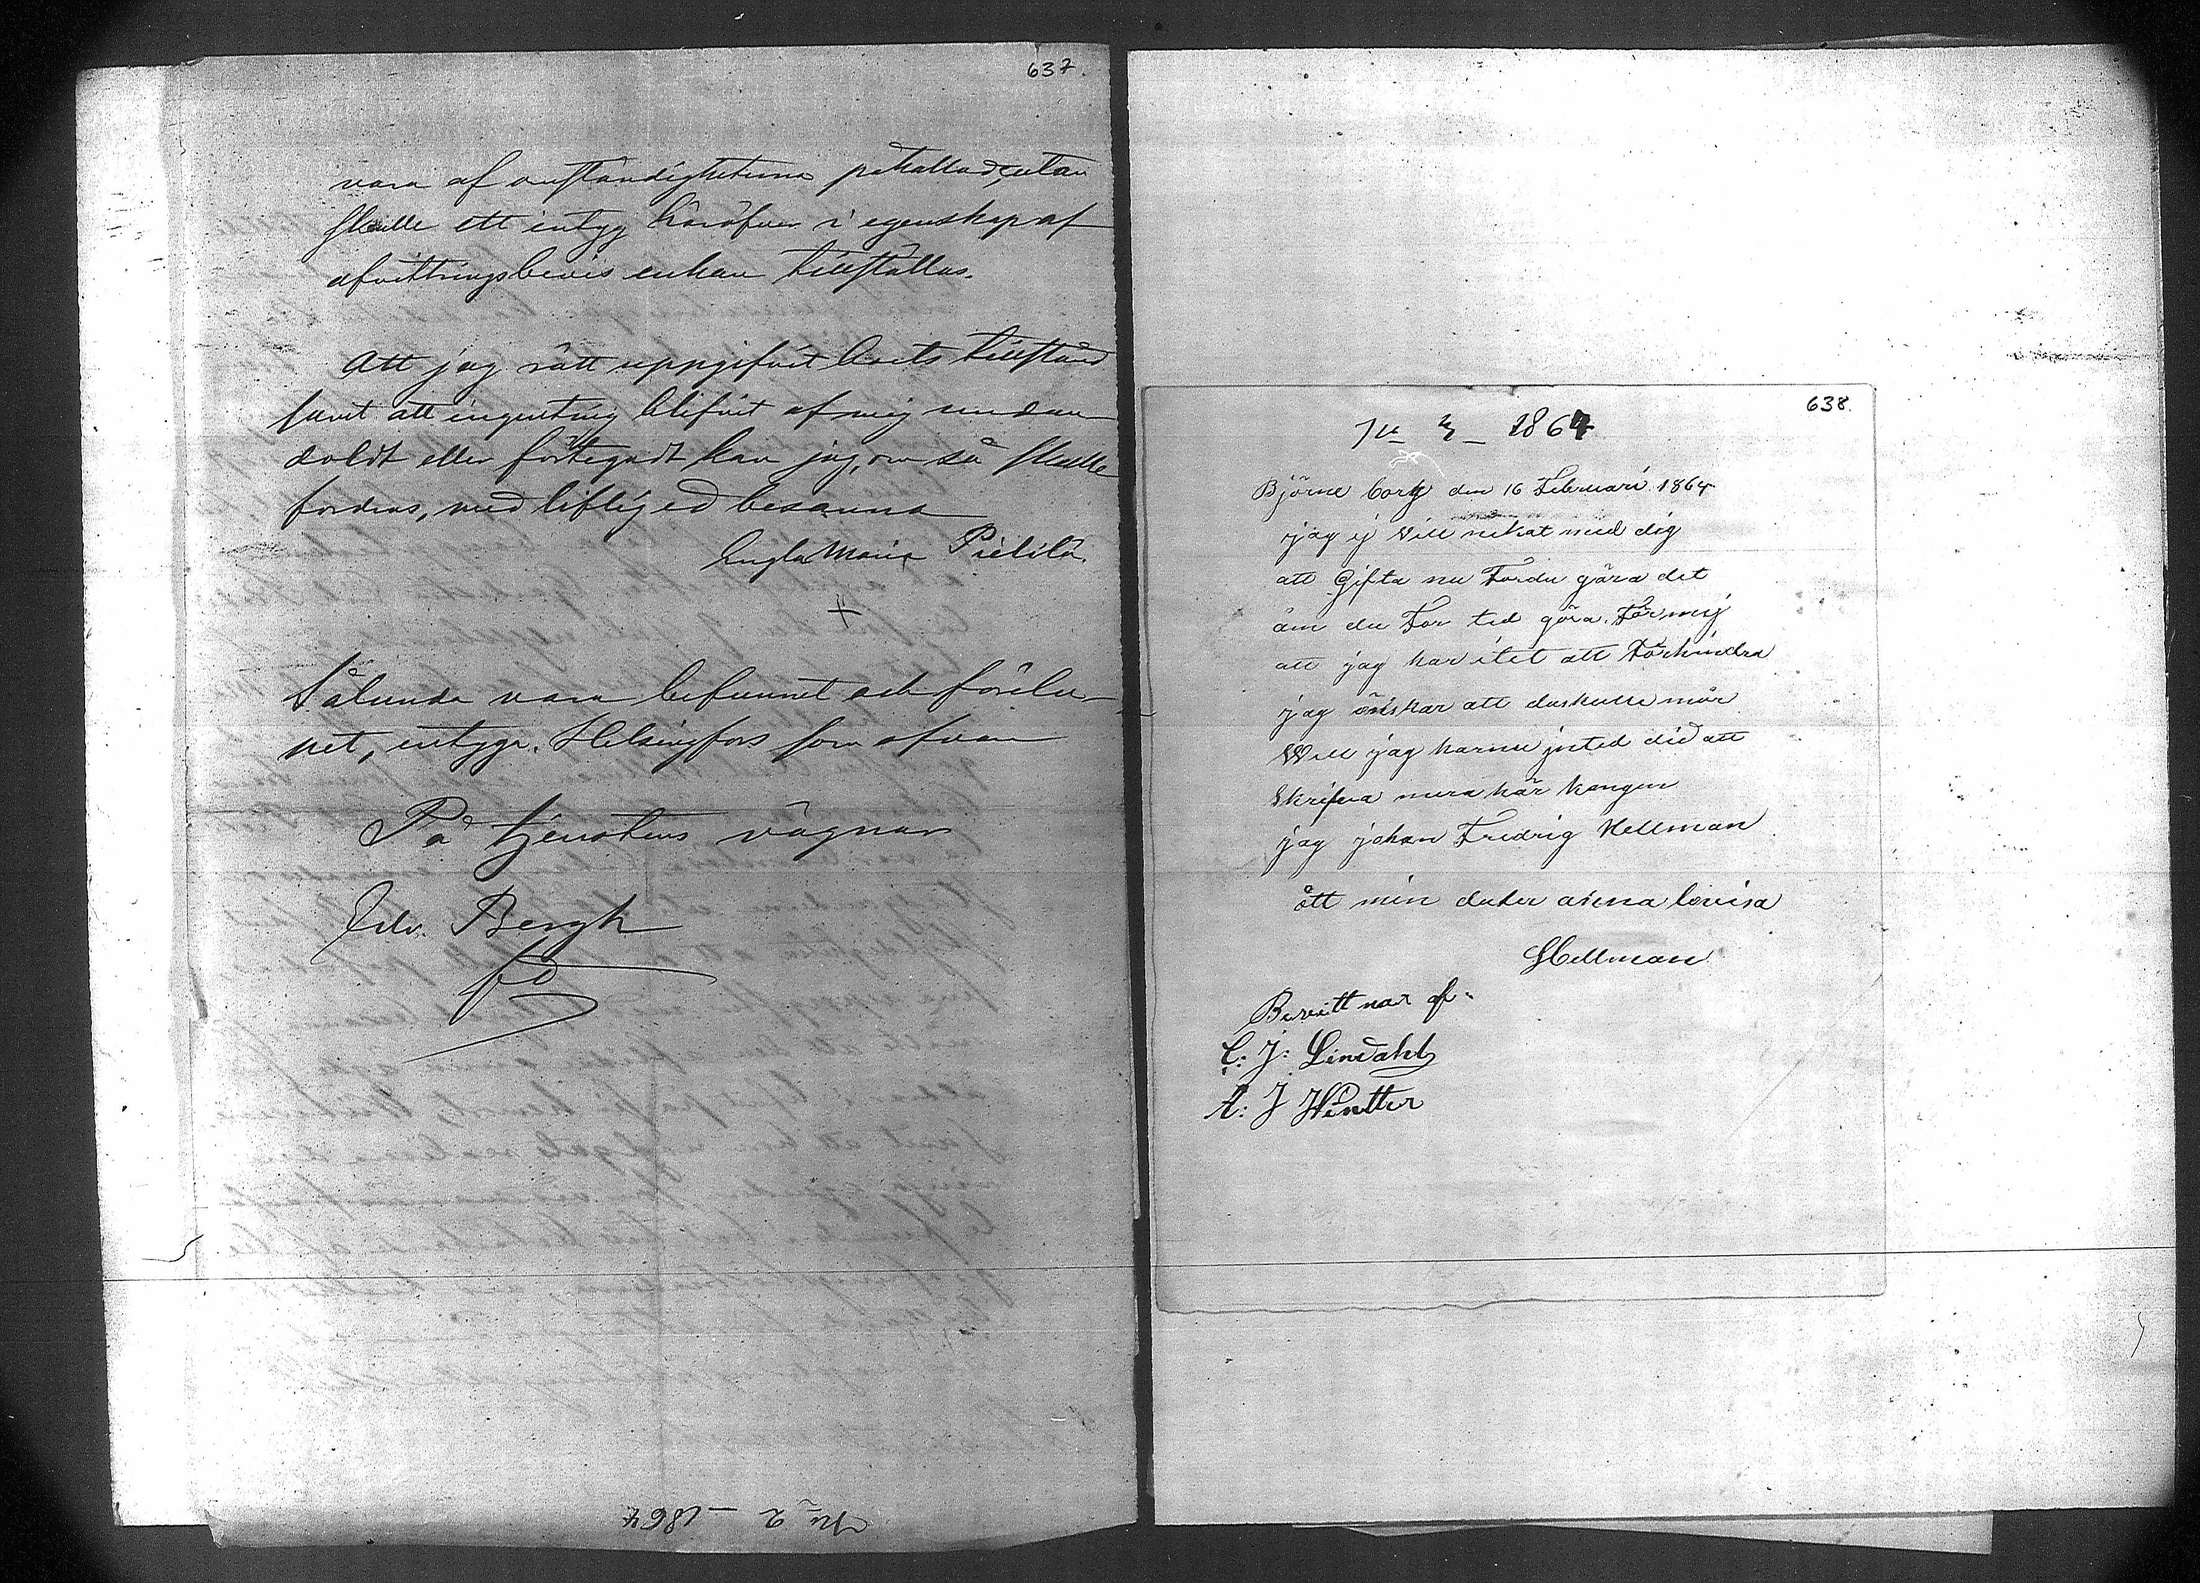 637.
vara af omständigheterna påkallad, utan
skulle ett intyg häröfver i egenskap af
afvittringsbevis enkan tillställas.
Att jag rätt uppgifvit boets tillstånd
samt att ingenting blifvit af mig undan
doldt eller förtegadt kan jag, om så skulle
fordras, med liflig ed besanna
Engla Maria Pietilä.
+
Sålunda vara befunnet och förelu-
pet, intyga. Helsingfors som ofvan
På tjenstens vägnar
Edv. Bergh
No 2 – 1864
638.
No 3 – 1864
Björne borg den 16 Februari 1864
jag ej Vill nekat med dig
att Gifta nu Fördu göra det
äm du For tid göra. För mig
att jag har itet att Förhindra
jag önskar att duskulle mår
Well jag harnu inted did att
Skrifva mera här kongen
jag johan Fredrig Hellman
ått min duter anna lovisa
Hellman
Bevittnar af.
C: J: Lindahl
A: J Wentter